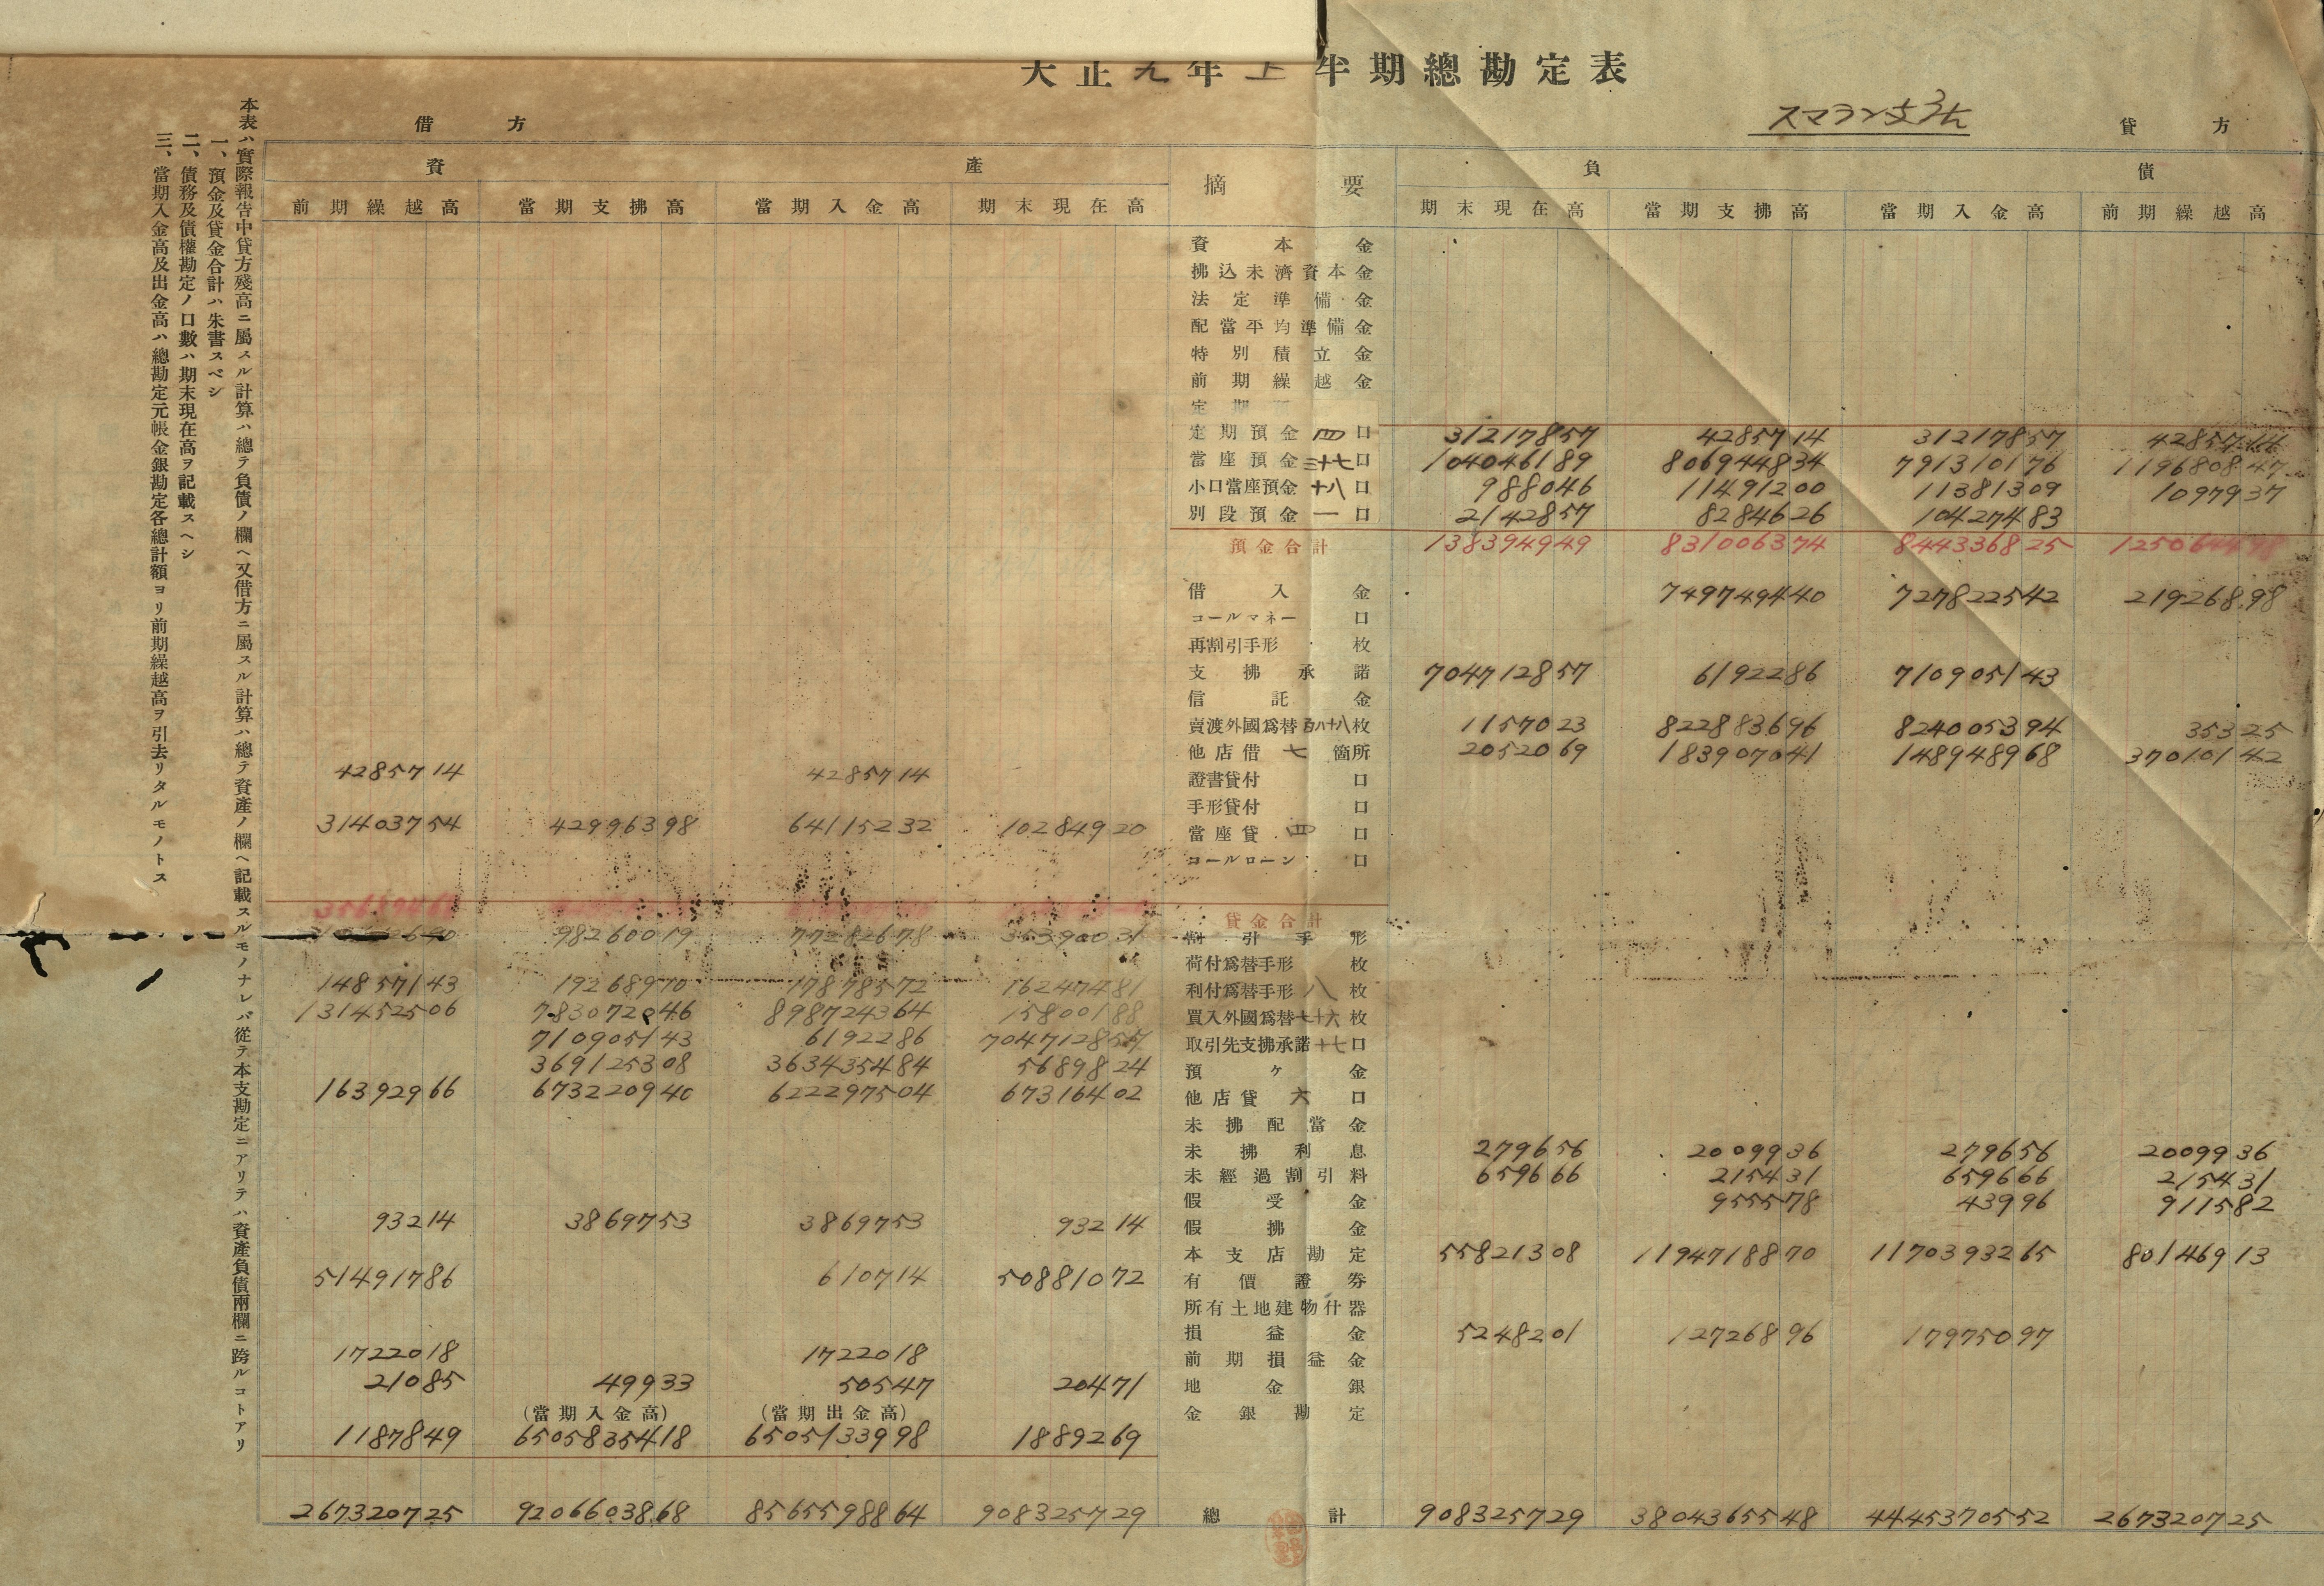 大正九年上半期總勘定表
スマラン支店
借方
貸方
資產
摘要
負債
前期繰越高 當期支拂高 當期入金高 期末現在高 期末現在高 當期支拂高 當期入金高 前期繰越高
本表ハ實際報告中貸方殘高ニ屬スル計算ハ總テ負債ノ欄ヘ又借方ニ屬スル計算ハ總テ資產ノ欄ヘ記載スルモノナレバ從テ本支勘定ニアリテハ資產負債兩欄ニ跨ルコトアリ
一、預金及貸金合計ハ朱書スベシ
二、債務及債權勘定ノ口數ハ期末現在高ヲ記載スヘシ
三、當期入金高及出金高ハ總勘定元帳金銀勘定各總計額ヨリ前期繰越高ヲ引去リタルモノトス
資本金
拂込未濟資本金
法定準備金
配當平均準備金
特別積立金
前期繰越金
定期
定期預金 四 口 31217857 4285714 31217857 4285714
當座預金 三十七 口 104046189 806944834 791310176 119680847
小口當座預金 十八 口 988046 11491200 11381309 1097937
別段預金 一 口 2142857 8284626 10427483
預金合計 138394949 831006374 844336825
借入金 749749440 727822542 21926898
コールマネー 口
再割引手形 枚
支拂承諾 704712857 6192286 710905143
信託金
賣渡外國爲替 百八十八 枚 1157023 822883696 824005394 35325
他店借 七 箇所 2052069 183907041 148948968 37010142
4285714 4285714 證書貸付 口
手形貸付 口
31403754 42996398 64115232 10284920 當座貸 四 口
コールローン 口
貸金合計
98260019 77282678 35390031 割引手形
荷付爲替手形 枚
14857143 19268970 17878572 16247481 利付爲替手形 八 枚
131452506 783072046 898724364 15800188 買入外國爲替 七十六 枚
710905143 6192286 704712857 取引先支拂承諾 十七 口
369125308 363435484 5689824 預ケ金
16392966 673220940 622297504 67316402 他店貸 六 口
未拂配當金
未拂利息 279656 2009936 279656 2009936
未經過割引料 659666 215431 659666 215431
假受金 955578 43996 911582
93214 3869753 3869753 93214 假拂金
本支店勘定 55821308 1194718870 1170393265 80146913
51491786 610714 50881072 有價證券
所有土地建物什器
損益金 5248201 12726896 17975097
1722018 1722018 前期損益金
21085 49933 50547 20471 地金銀
(當期入金高) (當期出金高) 金銀勘定
1187849 6505835418 6505133998 1889269
267320725 9206603868 8565598864 908325729 總計 908325729 3804365548 4445370552 267320725